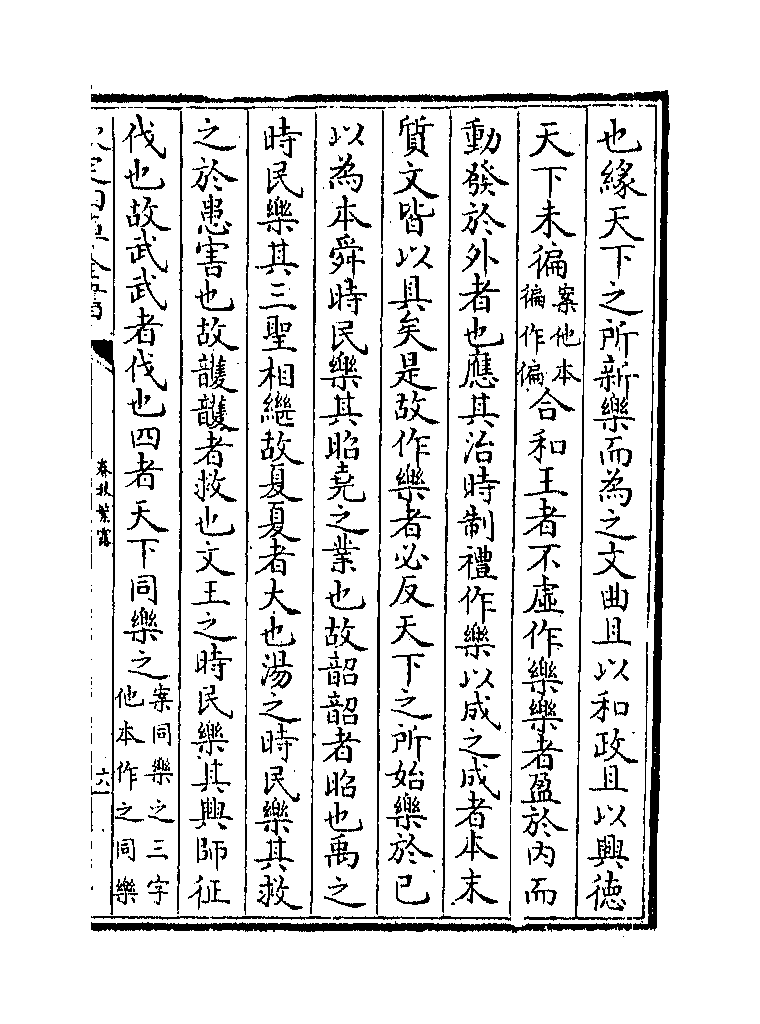 也緣天下之所新樂而為之文曲且以和政且以興德
天下未徧案他本徧作偏合和王者不虛作樂樂者盈於内而
動發於外者也應其治時制禮作樂以成之成者本末
質文皆以具矣是故作樂者必反天下之所始樂於已
以為本舜時民樂其昭堯之業也故韶韶者昭也禹之
時民樂其三聖相繼故夏夏者大也湯之時民樂其救
之於患害也故頀頀者救也文王之時民樂其興師征
伐也故武武者伐也四者天下同樂之案同樂之三字他本作之同樂
春秋繁露
六